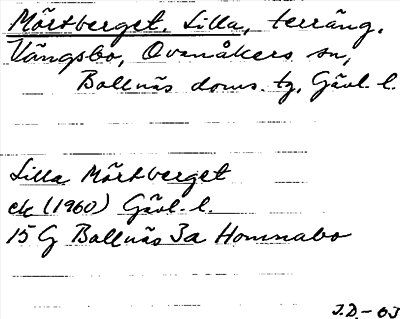 Mörtberget, Lilla, terräng.
Vängsbo, Ovanåkers sn,
Bollnäs doms. tg, Gävl. l.
Lilla Mörtberget
ek (1960) Gävl. l.
15 G Bollnäs 3a Homnabo
J.D.-03